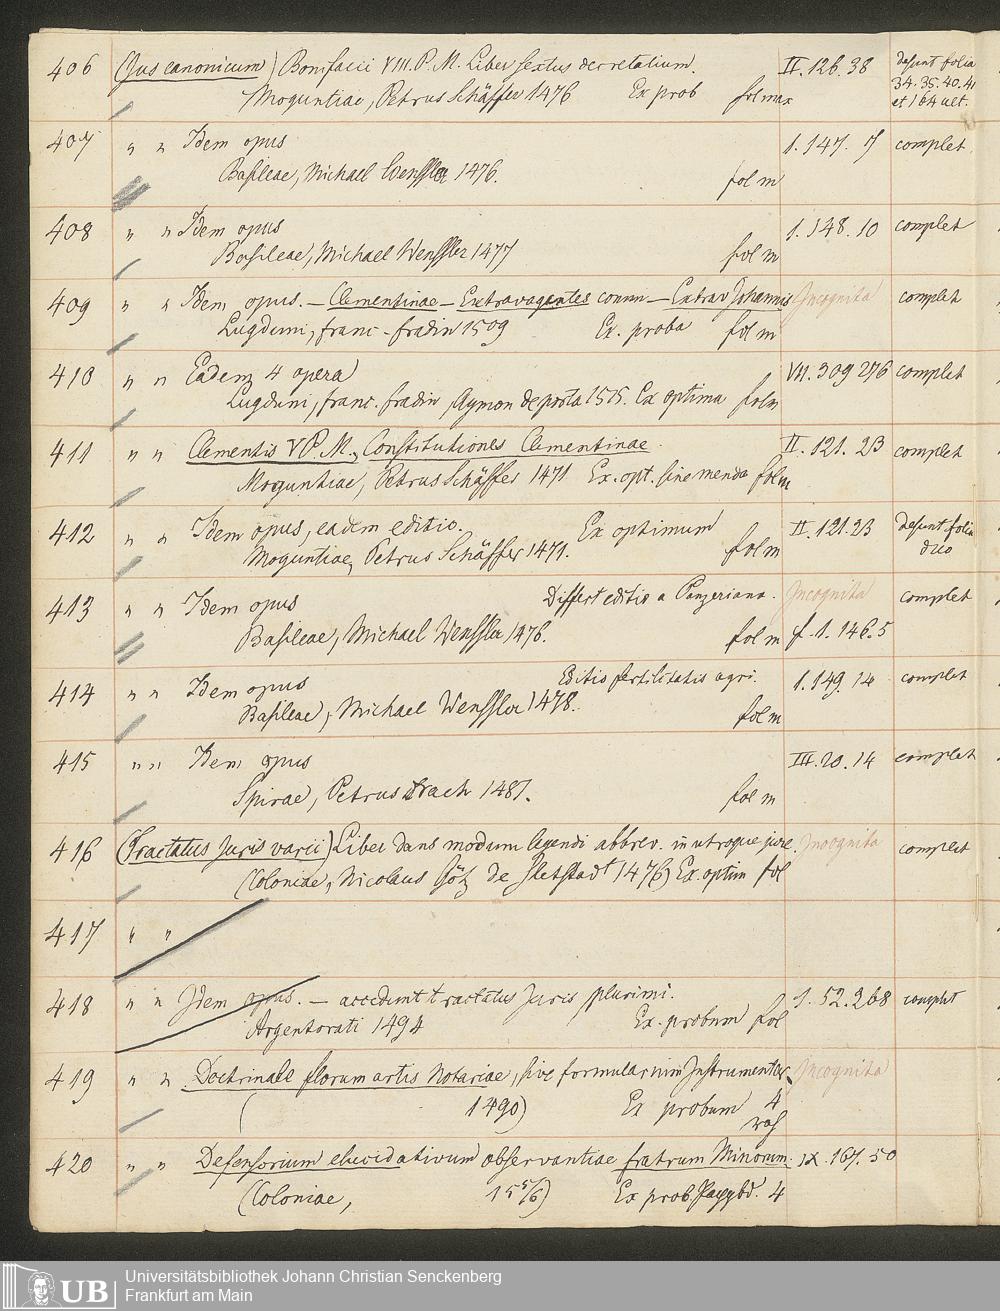 406 (Jus canonicum) Bonifacii VIII. P. M. Liber sextus decretalium. II. 126. 38 desunt folia
Moguntiae, Petrus Schäffer 1476 Ex prob fol max 34. 35. 40. 41
et 164 ult.
407 " " Idem opus 1. 147. 7 complet
Basileae, Michael Wenssler 1476. fol m
408 " " Idem opus 1. 148. 10 complet
Basileae, Michael Wenssler 1477 fol m
409 " " Idem opus. – Clementinae – Extravagantes comm – Extrav Johannis Incognita complet
Lugduni, franc. fradin 1509 Ex. proba fol m
410 " " Eadem 4 opera VII. 309 276 complet
Lugduni, franc. fradin, Aymon de porta 1515. Ex optima fol m
411 " " Clementis V P. M., Constitutiones Clementinae. II. 121. 23 complet
Moguntiae, Petrus Schäffer 1471 Ex. opt. sine menda fol m
412 " " Idem opus, eadem editio. Ex optimum II. 121. 23 desunt folia
Moguntiae, Petrus Schäffer 1471. fol m duo
413 " " Idem opus Differt editio a Panzeriana. Incognita complet
Basileae, Michael Wenssler 1476. fol m cf. 1. 146. 5
414 " " Idem opus Editio fertilitatis agri. 1. 149. 14 complet
Basileae, Michael Wenssler 1478. fol m
415 " " Idem opus III. 20. 14 complet
Spirae, Petrus Drach 1481. fol m
416 (Tractatus Juris varii) Liber dans modum legendi abbrev. in utroque jure. Incognita complet
(Coloniae, Nicolaus Götz de Sletstadt 1476) Ex. optim fol
417 " "
418 " " Idem opus. – accedunt tractatus Juris plurimi. 1. 52. 268 complet
Argentorati 1494 Ex. probum fol
419 " " Doctrinale florum artis Notariae, sive formularium Instrumentor. Incognita
( 1490) Ex probum 4
420 " " Defensorium elucidativum observantiae fratrum Minorum. IX. 167. 50
(Coloniae, Ex prob. 4
UB
Universitätsbibliothek Johann Christian Senckenberg
Frankfurt am Main